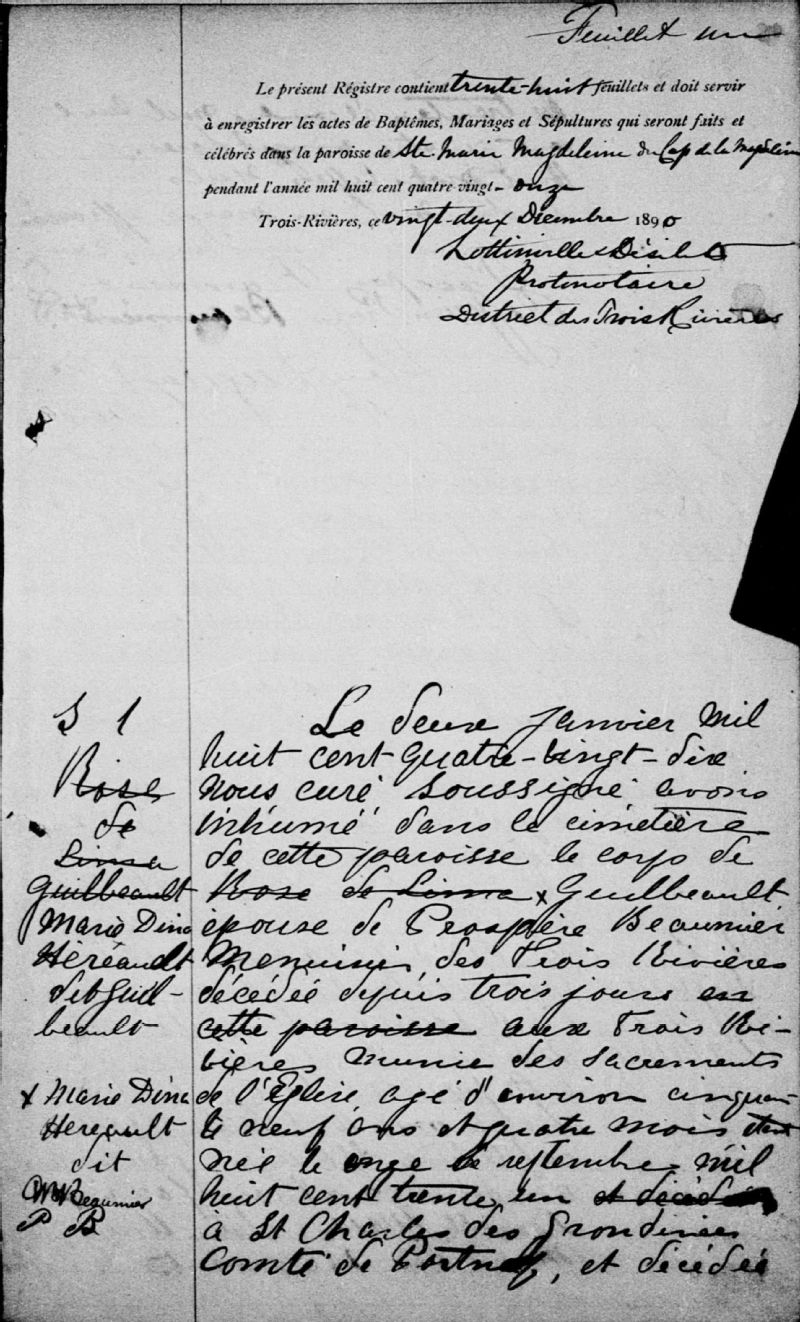 Feuillet un
Le présent Régistre contient trente-huit feuillets et doit servir
à enregistrer les actes de Baptêmes, Mariages et Sépultures qui seront faits et
célébrés dans la paroisse de Ste. Marie Magdeleine du Cap de la Magdeleine
pendant l'année mil huit cent quatre vingt-onze
Trois-Rivières, ce vingt-deux Décembre 1890
Lottinville & Désilets
Protonotaire
District des Trois Rivières
S 1
Rose
de
Lima
Guilbeault
Marie Dina
Héréault
dit Guil-
beault
x Marie Dina
Héréault
dit
Beaumier
P B
Le deux janvier mil
huit cent quatre-vingt-dix
nous curé soussigné avons
inhumé dans le cimetière
de cette paroisse le corps de
Rose de Lima x Guilbeault
épouse de Prospère Beaumier
Menuisier des Trois Rivières
décédée depuis trois jours en
cette paroisse aux Trois Ri-
vières munie des sacrements
de l'Église agé d'environ cinquan-
te neuf ans et quatre mois étant
née le onze de septembre mil
huit cent trente un et décédée
à St Charles des Grondines
Comté de Portneuf, et décédée